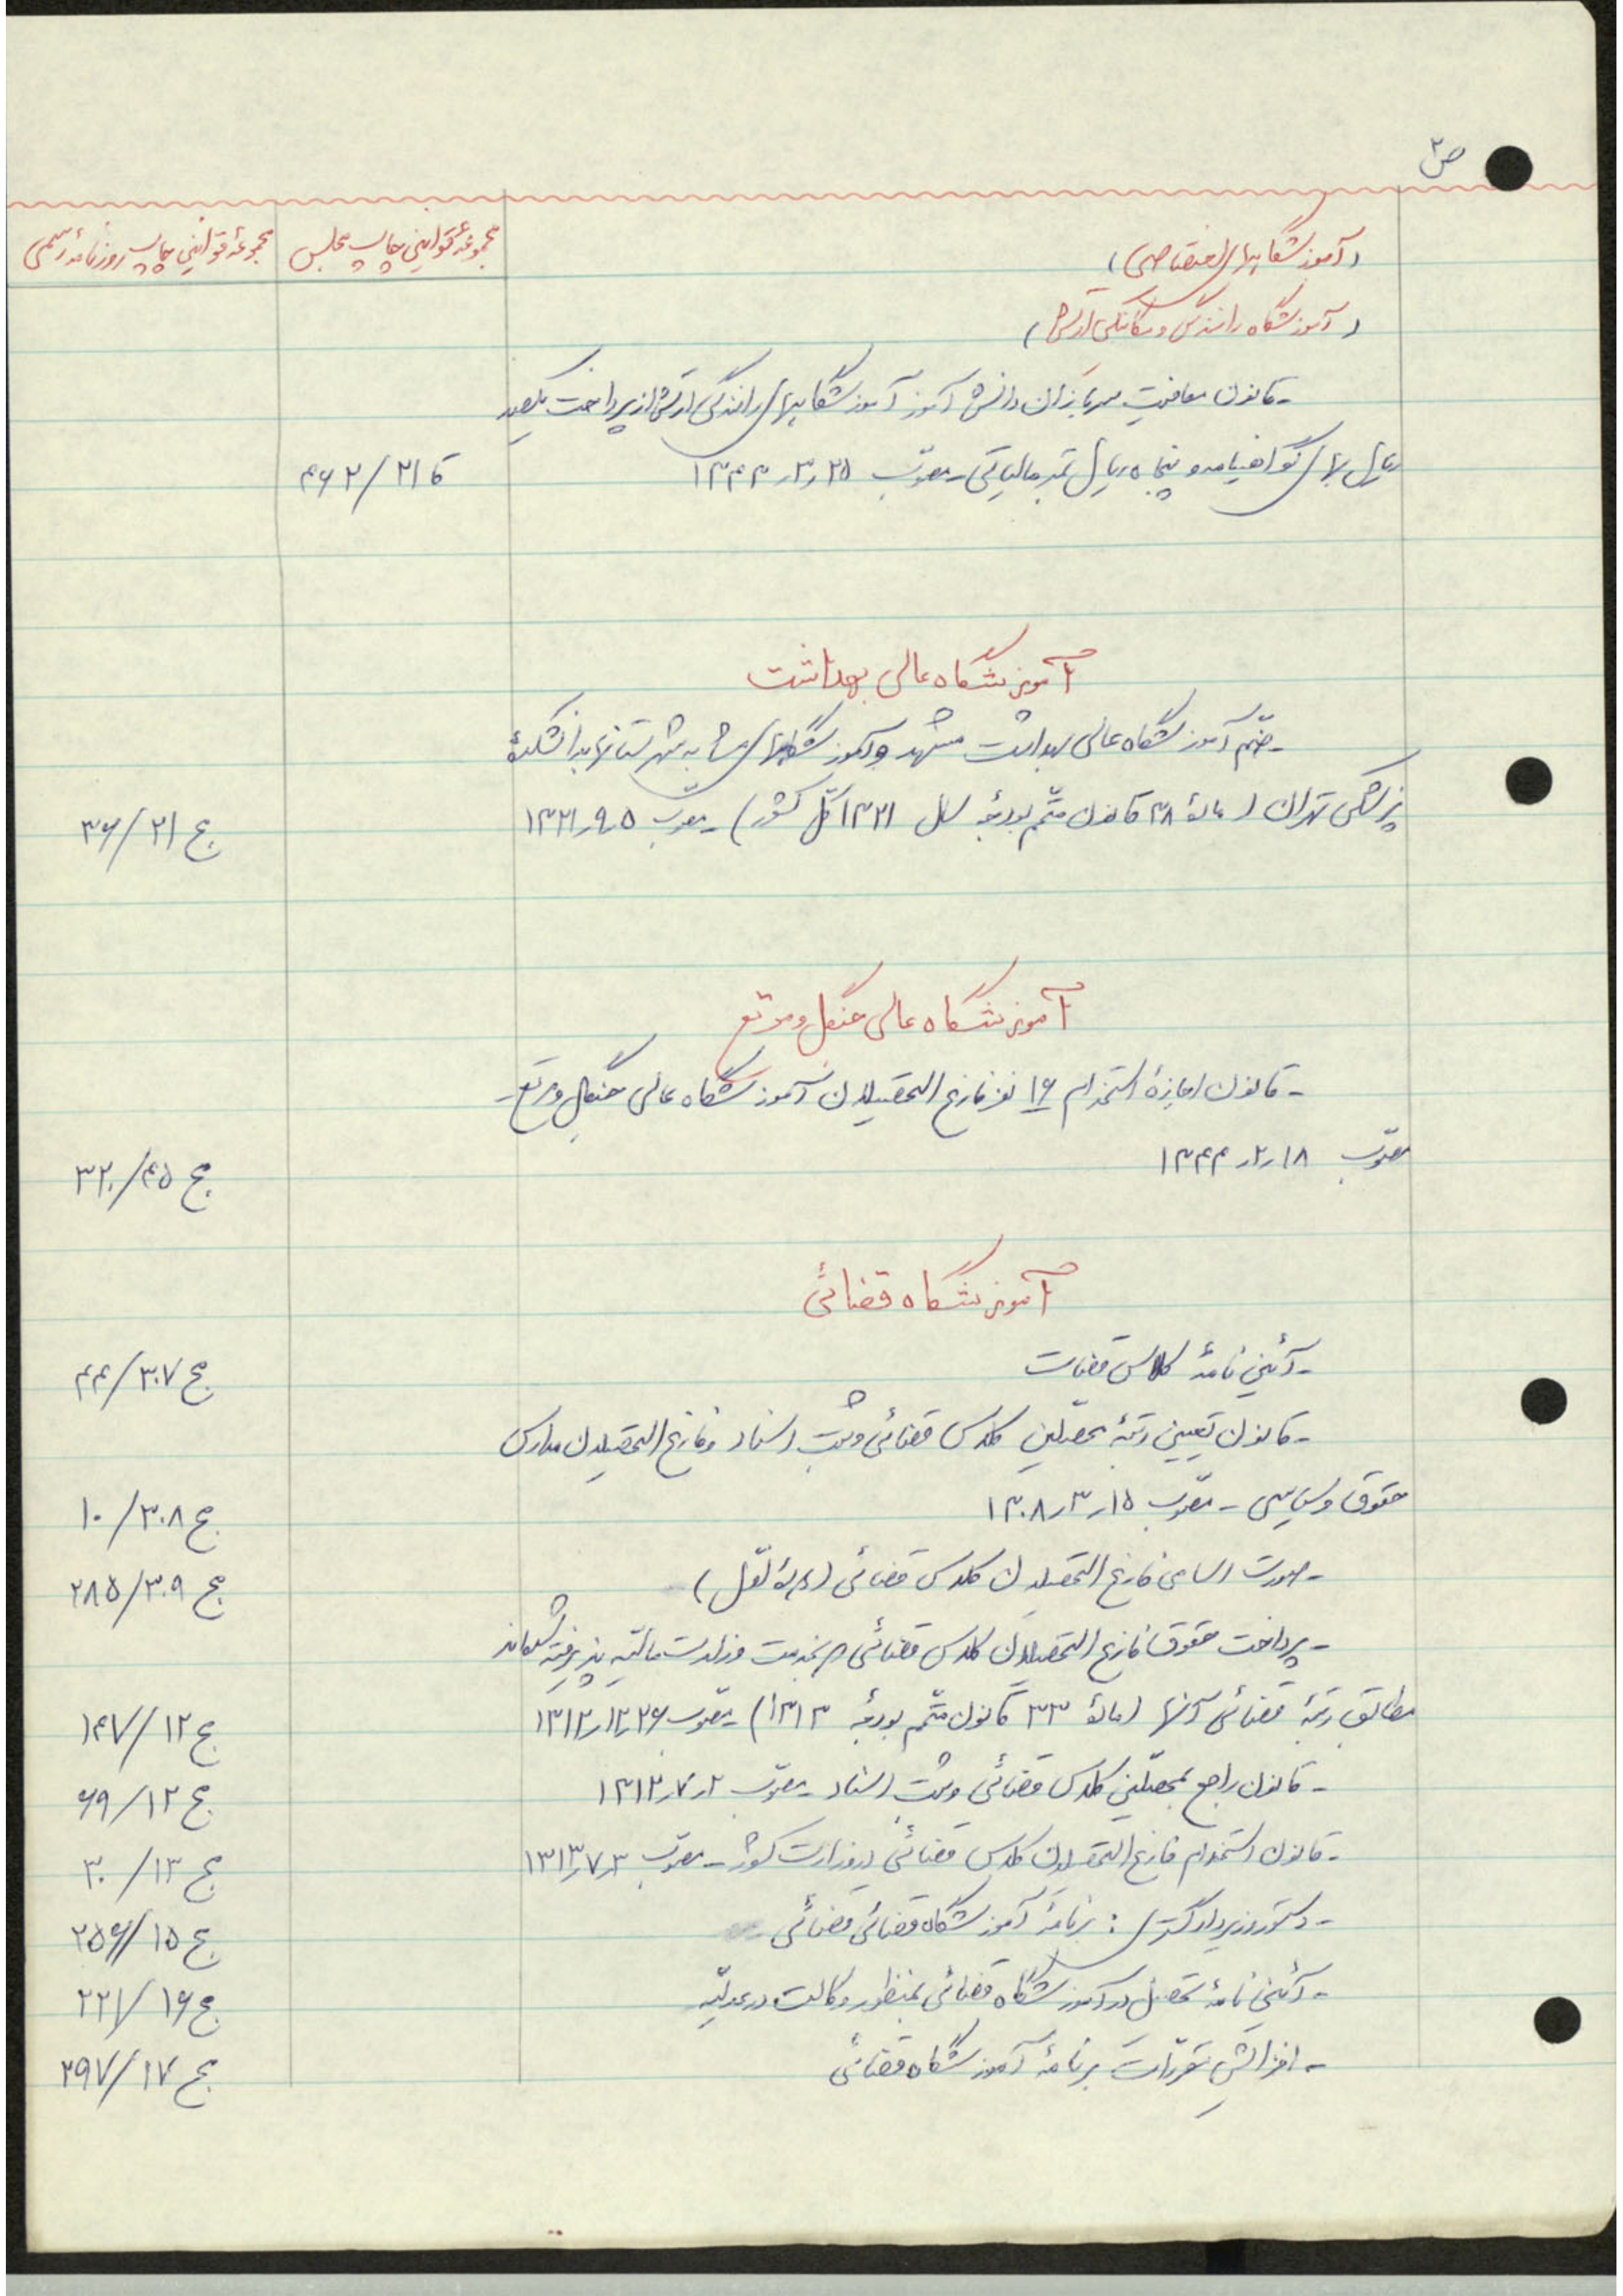 ص ۳
مجموعهٔ قوانین چاپ مجلس
مجموعهٔ قوانین چاپ روزنامهٔ رسمی
(آموزشگاههای اختصاصی)
(آموزشگاه رانندگی و مکانیکی ارتش)
- قانون معافیت سربازان دانش آموز آموزشگاههای رانندگی ارتش از پرداخت یکصد
ریال بهای گواهینامه و پنجاه ریال تمبر مالیاتی - مصوّب ۲۵ر۳ر۱۳۴۳ ۴۶۲/۲۱
آموزشگاه عالی بهداشت
- ضمّ آموزشگاه عالی بهداشت مشهد و آموزشگاههای مشابه شهرستانها بدانشکدهٔ
پزشکی تهران (مادهٔ ۳۸ قانون متمّم بودجهٔ سال ۱۳۲۱ کلّ کشور) - مصوّب ۵ر۹ر۱۳۲۱ ج ۳۶/۲۱
آموزشگاه عالی جنگل و مرتع
- قانون اجازهٔ استخدام ۱۶ نفر فارغ التحصیلان آموزشگاه عالی جنگل و مرتع -
مصوّب ۱۸ر۲ر۱۳۴۴ ج ۳۲۰/۴۵
آموزشگاه قضائی
- آئین نامهٔ کلاس قضات ج ۴۴/۳۰۷
- قانون تعیین رتبهٔ محصّلین کلاس قضائی و ثبت اسناد و فارغ التحصیلان مدارس
حقوق و سیاسی - مصوّب ۱۵ر۳ر۱۳۰۸ ج ۱۰/۳۰۸
- صورت اسامی فارغ التحصیلان کلاس قضائی (دورهٔ اوّل) ج ۲۸۵/۳۰۹
- پرداخت حقوق فارغ التحصیلان کلاس قضائی که بخدمت وزارت مالیّه پذیرفته شده‌اند
مطابق رتبهٔ قضائی آنها (مادهٔ ۳۳ قانون متمّم بودجهٔ ۱۳۱۳) - مصوّب ۲۶ر۱۲ر۱۳۱۲ ج ۱۴۷/۱۲
- قانون راجع بمحصّلین کلاس قضائی و ثبت اسناد - مصوّب ۲ر۷ر۱۳۱۲ ج ۶۹/۱۲
- قانون استخدام فارغ التحصیلان کلاس قضائی در وزارت کشور - مصوّب ۳ر۷ر۱۳۱۳ ج ۳۰/۱۳
- دستور وزیر دادگستری: برنامهٔ آموزشگاه قضائی قضائی ج ۲۵۶/۱۵
- آئین نامهٔ تحصیل در آموزشگاه قضائی بمنظور وکالت در عدلیّه ج ۲۲۱/۱۶
- افزایش مقرّرات برنامهٔ آموزشگاه قضائی ج ۲۹۷/۱۷